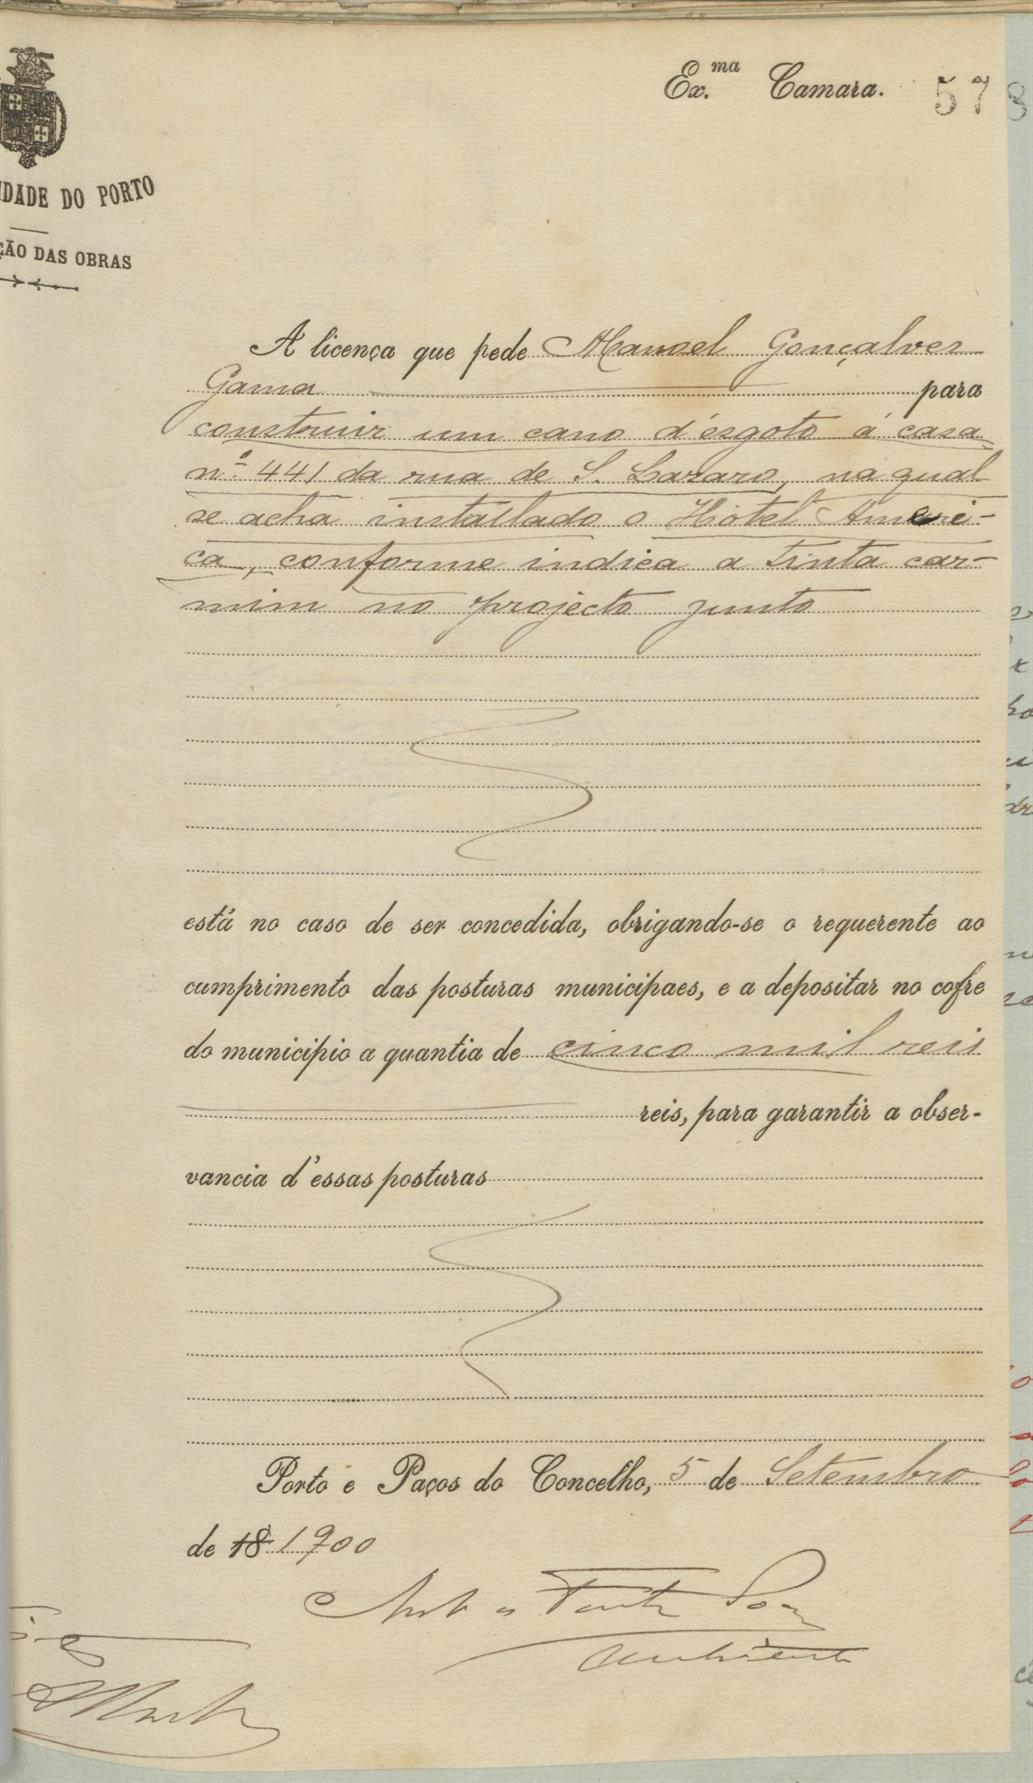 Ex.ma Camara. 578
IDADE DO PORTO
ÇÃO DAS OBRAS
A licença que pede Manoel Gonçalves
Gama para
construir um cano d'esgoto á casa
n.º 441 da rua de S. Lazaro, na qual
se acha installado o Hotel Ameri-
ca, conforme indica a tinta car-
mim no projecto junto
está no caso de ser concedida, obrigando-se o requerente ao
cumprimento das posturas municipaes, e a depositar no cofre
do municipio a quantia de cinco mil reis
reis, para garantir a obser-
vancia d'essas posturas
Porto e Paços do Concelho, 5 de Setembro
de 18 1900